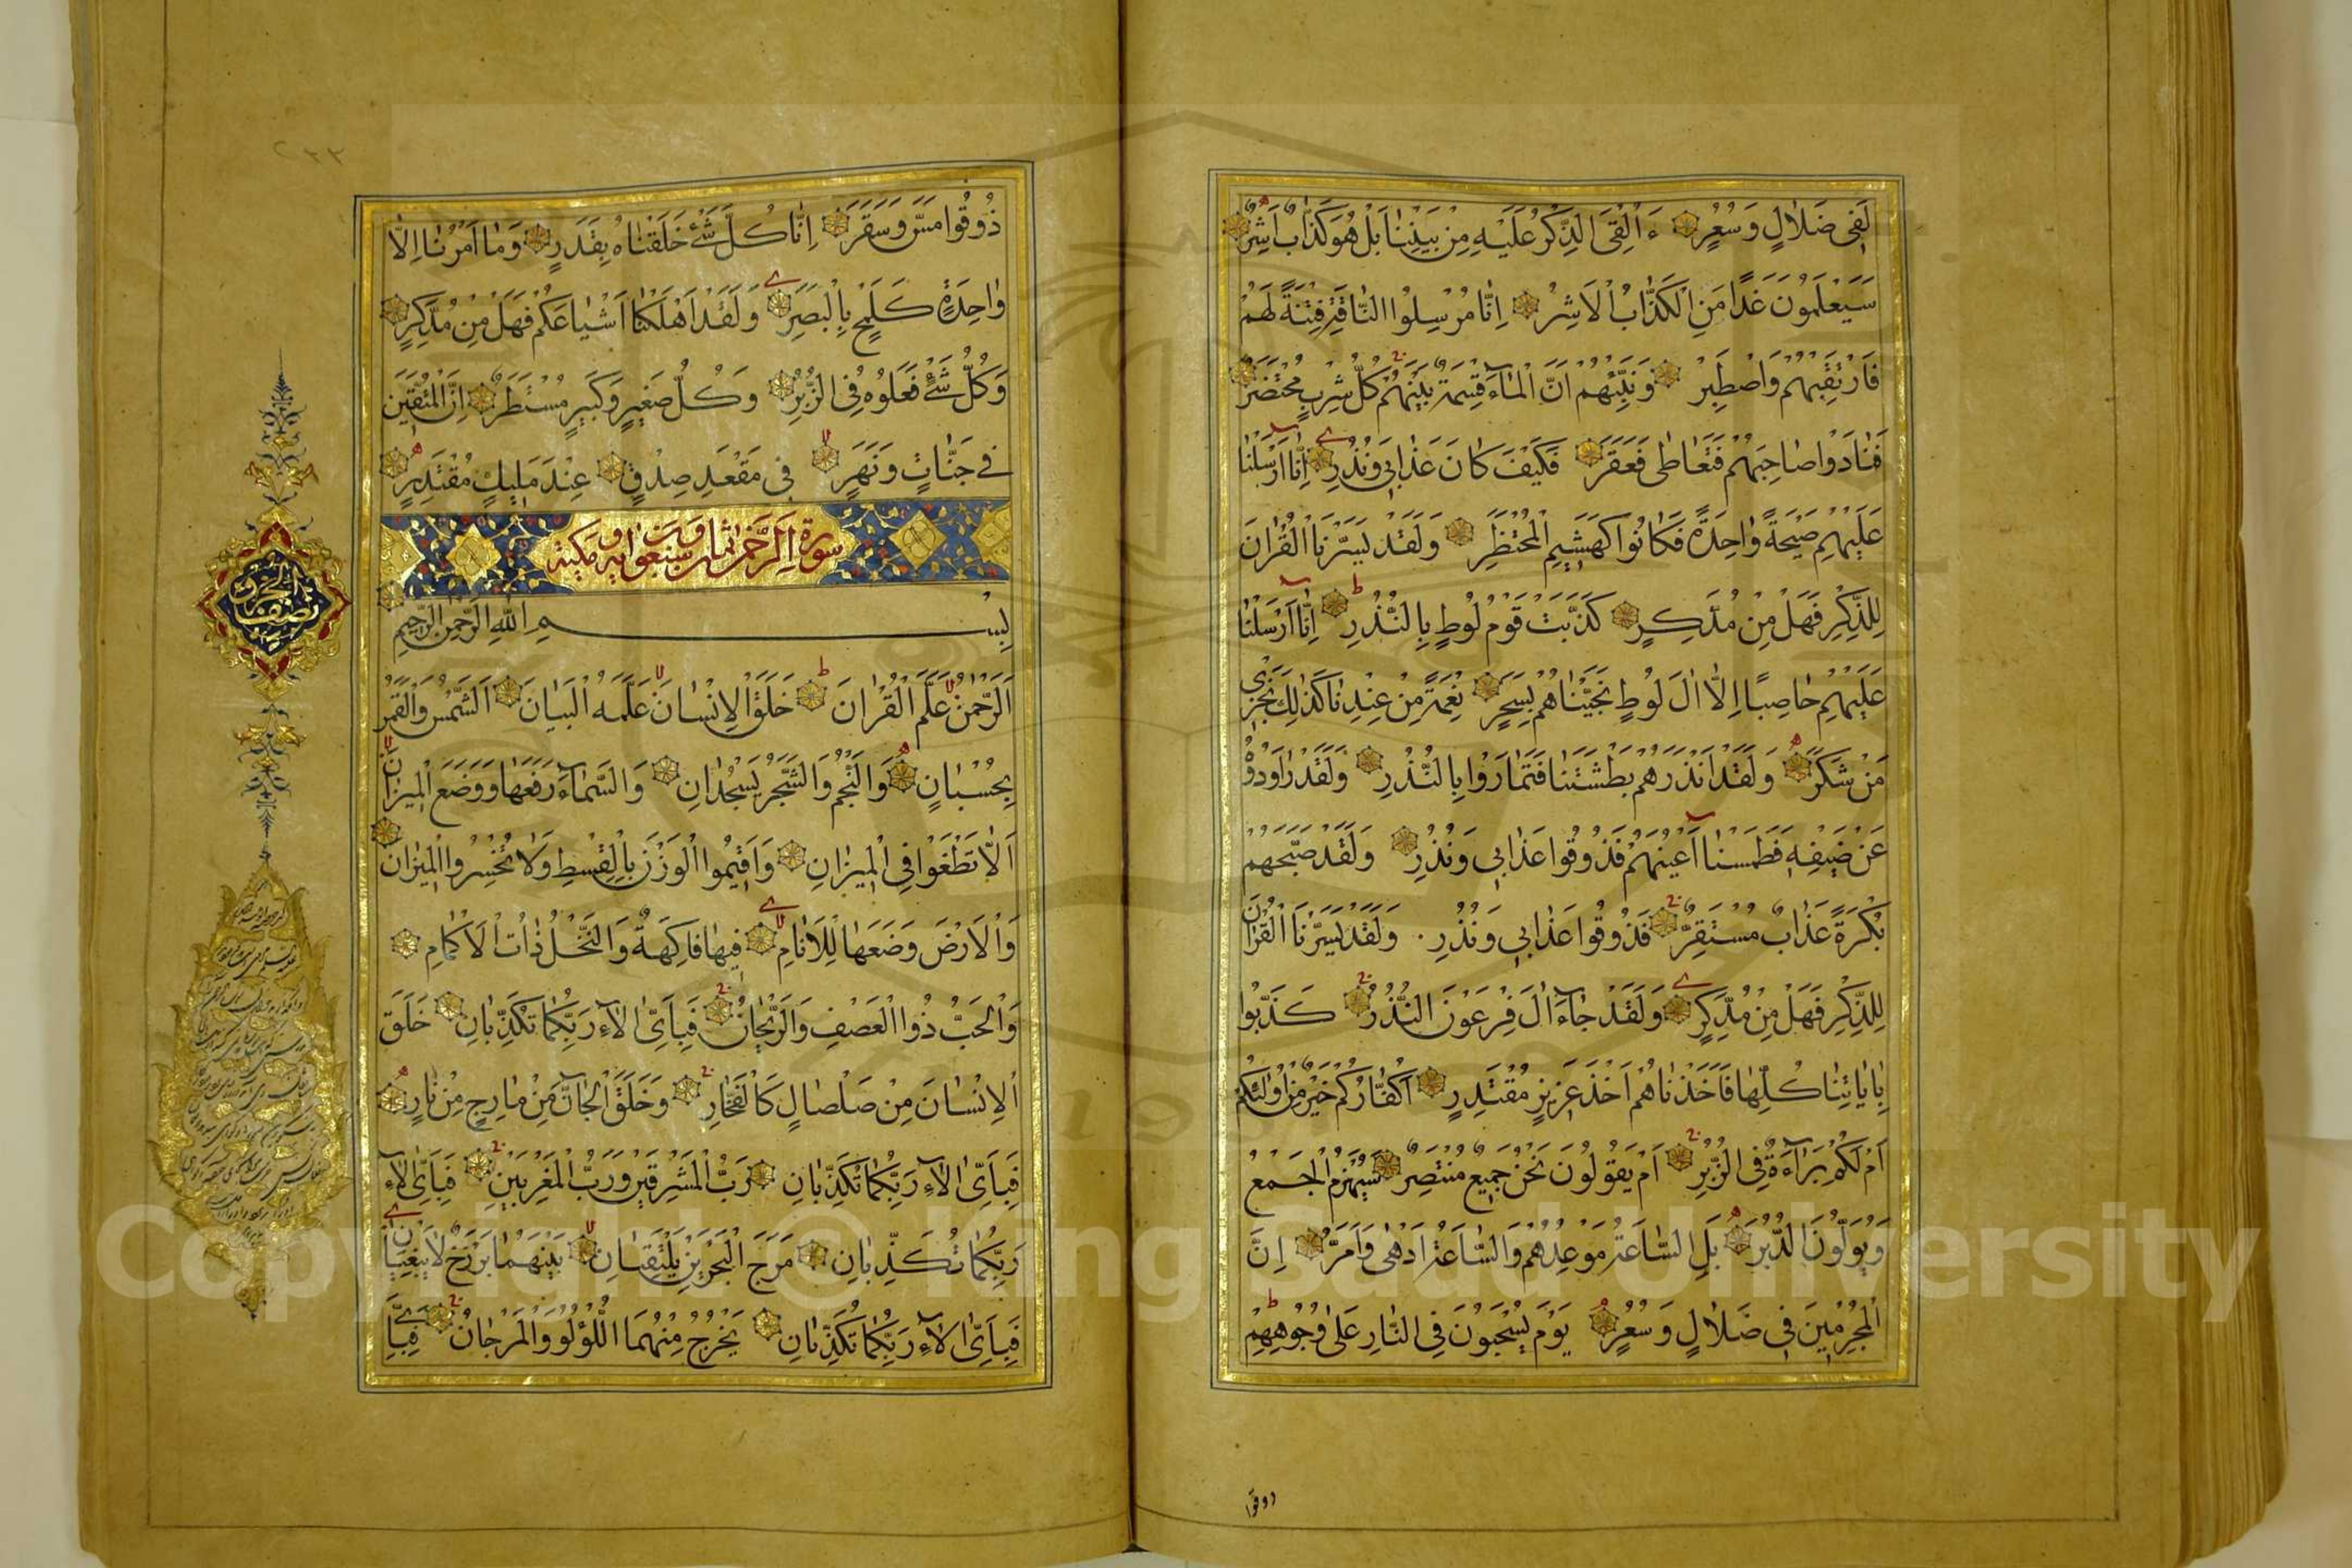 لَفِى ضَلَالٍ وَسُعُرٍ ءَاُلْقِىَ الذِّكْرُ عَلَيْهِ مِنْ بَيْنِنَا بَلْ هُوَ كَذَّابٌ اَشِرٌ
سَيَعْلَمُونَ غَدًا مَنِ الْكَذَّابُ الْاَشِرُ اِنَّا مُرْسِلُوا النَّاقَةِ فِتْنَةً لَهُمْ
فَارْتَقِبْهُمْ وَاصْطَبِرْ وَنَبِّئْهُمْ اَنَّ الْمَآءَ قِسْمَةٌ بَيْنَهُمْ كُلُّ شِرْبٍ مُحْتَضَرٌ
فَنَادَوْا صَاحِبَهُمْ فَتَعَاطٰى فَعَقَرَ فَكَيْفَ كَانَ عَذَابِى وَنُذُرِ اِنَّا اَرْسَلْنَا
عَلَيْهِمْ صَيْحَةً وَاحِدَةً فَكَانُوا كَهَشِيمِ الْمُحْتَظِرِ وَلَقَدْ يَسَّرْنَا الْقُرْاٰنَ
لِلذِّكْرِ فَهَلْ مِنْ مُدَّكِرٍ كَذَّبَتْ قَوْمُ لُوطٍ بِالنُّذُرِ اِنَّا اَرْسَلْنَا
عَلَيْهِمْ حَاصِبًا اِلَّا اٰلَ لُوطٍ نَجَّيْنَاهُمْ بِسَحَرٍ نِعْمَةً مِنْ عِنْدِنَا كَذٰلِكَ نَجْزِى
مَنْ شَكَرَ وَلَقَدْ اَنْذَرَهُمْ بَطْشَتَنَا فَتَمَارَوْا بِالنُّذُرِ وَلَقَدْ رَاوَدُوهُ
عَنْ ضَيْفِهِ فَطَمَسْنَا اَعْيُنَهُمْ فَذُوقُوا عَذَابِى وَنُذُرِ وَلَقَدْ صَبَّحَهُمْ
بُكْرَةً عَذَابٌ مُسْتَقِرٌّ فَذُوقُوا عَذَابِى وَنُذُرِ وَلَقَدْ يَسَّرْنَا الْقُرْاٰنَ
لِلذِّكْرِ فَهَلْ مِنْ مُدَّكِرٍ وَلَقَدْ جَآءَ اٰلَ فِرْعَوْنَ النُّذُرُ كَذَّبُوا
بِاٰيَاتِنَا كُلِّهَا فَاَخَذْنَاهُمْ اَخْذَ عَزِيزٍ مُقْتَدِرٍ اَكُفَّارُكُمْ خَيْرٌ مِنْ اُولٰئِكُمْ
اَمْ لَكُمْ بَرَآءَةٌ فِى الزُّبُرِ اَمْ يَقُولُونَ نَحْنُ جَمِيعٌ مُنْتَصِرٌ سَيُهْزَمُ الْجَمْعُ
وَيُوَلُّونَ الدُّبُرَ بَلِ السَّاعَةُ مَوْعِدُهُمْ وَالسَّاعَةُ اَدْهٰى وَاَمَرُّ اِنَّ
الْمُجْرِمِينَ فِى ضَلَالٍ وَسُعُرٍ يَوْمَ يُسْحَبُونَ فِى النَّارِ عَلٰى وُجُوهِهِمْ
ذوقوا
٢٣٣
ذُوقُوا مَسَّ سَقَرَ اِنَّا كُلَّ شَىْءٍ خَلَقْنَاهُ بِقَدَرٍ وَمَا اَمْرُنَا اِلَّا
وَاحِدَةٌ كَلَمْحٍ بِالْبَصَرِ وَلَقَدْ اَهْلَكْنَا اَشْيَاعَكُمْ فَهَلْ مِنْ مُدَّكِرٍ
وَكُلُّ شَىْءٍ فَعَلُوهُ فِى الزُّبُرِ وَكُلُّ صَغِيرٍ وَكَبِيرٍ مُسْتَطَرٌ اِنَّ الْمُتَّقِينَ
فِى جَنَّاتٍ وَنَهَرٍ فِى مَقْعَدِ صِدْقٍ عِنْدَ مَلِيكٍ مُقْتَدِرٍ
سورة الرحمن ثمان وسبعون اية مكية
بِسْمِ اللّٰهِ الرَّحْمٰنِ الرَّحِيمِ
اَلرَّحْمٰنُ عَلَّمَ الْقُرْاٰنَ خَلَقَ الْاِنْسَانَ عَلَّمَهُ الْبَيَانَ اَلشَّمْسُ وَالْقَمَرُ
بِحُسْبَانٍ وَالنَّجْمُ وَالشَّجَرُ يَسْجُدَانِ وَالسَّمَآءَ رَفَعَهَا وَوَضَعَ الْمِيزَانَ
اَلَّا تَطْغَوْا فِى الْمِيزَانِ وَاَقِيمُوا الْوَزْنَ بِالْقِسْطِ وَلَا تُخْسِرُوا الْمِيزَانَ
وَالْاَرْضَ وَضَعَهَا لِلْاَنَامِ فِيهَا فَاكِهَةٌ وَالنَّخْلُ ذَاتُ الْاَكْمَامِ
وَالْحَبُّ ذُوا الْعَصْفِ وَالرَّيْحَانُ فَبِاَىِّ اٰلَآءِ رَبِّكُمَا تُكَذِّبَانِ خَلَقَ
الْاِنْسَانَ مِنْ صَلْصَالٍ كَالْفَخَّارِ وَخَلَقَ الْجَآنَّ مِنْ مَارِجٍ مِنْ نَارٍ
فَبِاَىِّ اٰلَآءِ رَبِّكُمَا تُكَذِّبَانِ رَبُّ الْمَشْرِقَيْنِ وَرَبُّ الْمَغْرِبَيْنِ فَبِاَىِّ اٰلَآءِ
رَبِّكُمَا تُكَذِّبَانِ مَرَجَ الْبَحْرَيْنِ يَلْتَقِيَانِ بَيْنَهُمَا بَرْزَخٌ لَا يَبْغِيَانِ
فَبِاَىِّ اٰلَآءِ رَبِّكُمَا تُكَذِّبَانِ يَخْرُجُ مِنْهُمَا اللُّؤْلُؤُ وَالْمَرْجَانُ فَبِاَىِّ
نصف الجزء
Copyright © King Saud University